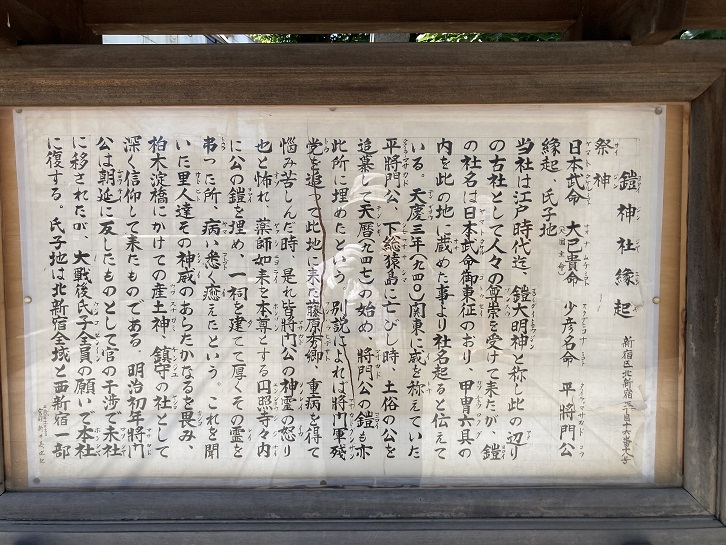 鎧神社縁起
新宿区北新宿三丁目十六番十八号
祭神
日本武命 大己貴命 少彦名命 平将門公
縁起、氏子地
当社は江戸時代迄、鎧大明神と称し此の辺り
の古社として人々の尊崇を受けて来たが、鎧
の社名は日本武命御東征のおり、甲冑六具の
内を此の地に蔵めた事より社名起ると伝えて
いる。天慶三年(九四〇)関東に威を称えていた
平将門公、下総猿島に亡びし時、土俗の公を
追慕して天暦(九四七)の始め、将門公の鎧も亦
此所に埋めたという。別説によれば将門軍残
党を追って此地に来た藤原秀郷、重病を得て
悩み苦しんだ時、是れ皆将門公の神霊の怒り
也と怖れ、薬師如来を本尊とする円照寺々内
に公の鎧を埋め、一祠を建てて厚くその霊を
弔った所、病い悉く癒えたという。これを聞
いた里人達その神威のあらたかなるを畏み、
柏木淀橋にかけての産土神、鎮守の社として
深く信仰して来たものである。明治初年将門
公は朝廷に反したものとして官の干渉で末社
に移されたが、大戦後氏子全員の願いで本社
に復する。氏子地は北新宿全域と西新宿一部